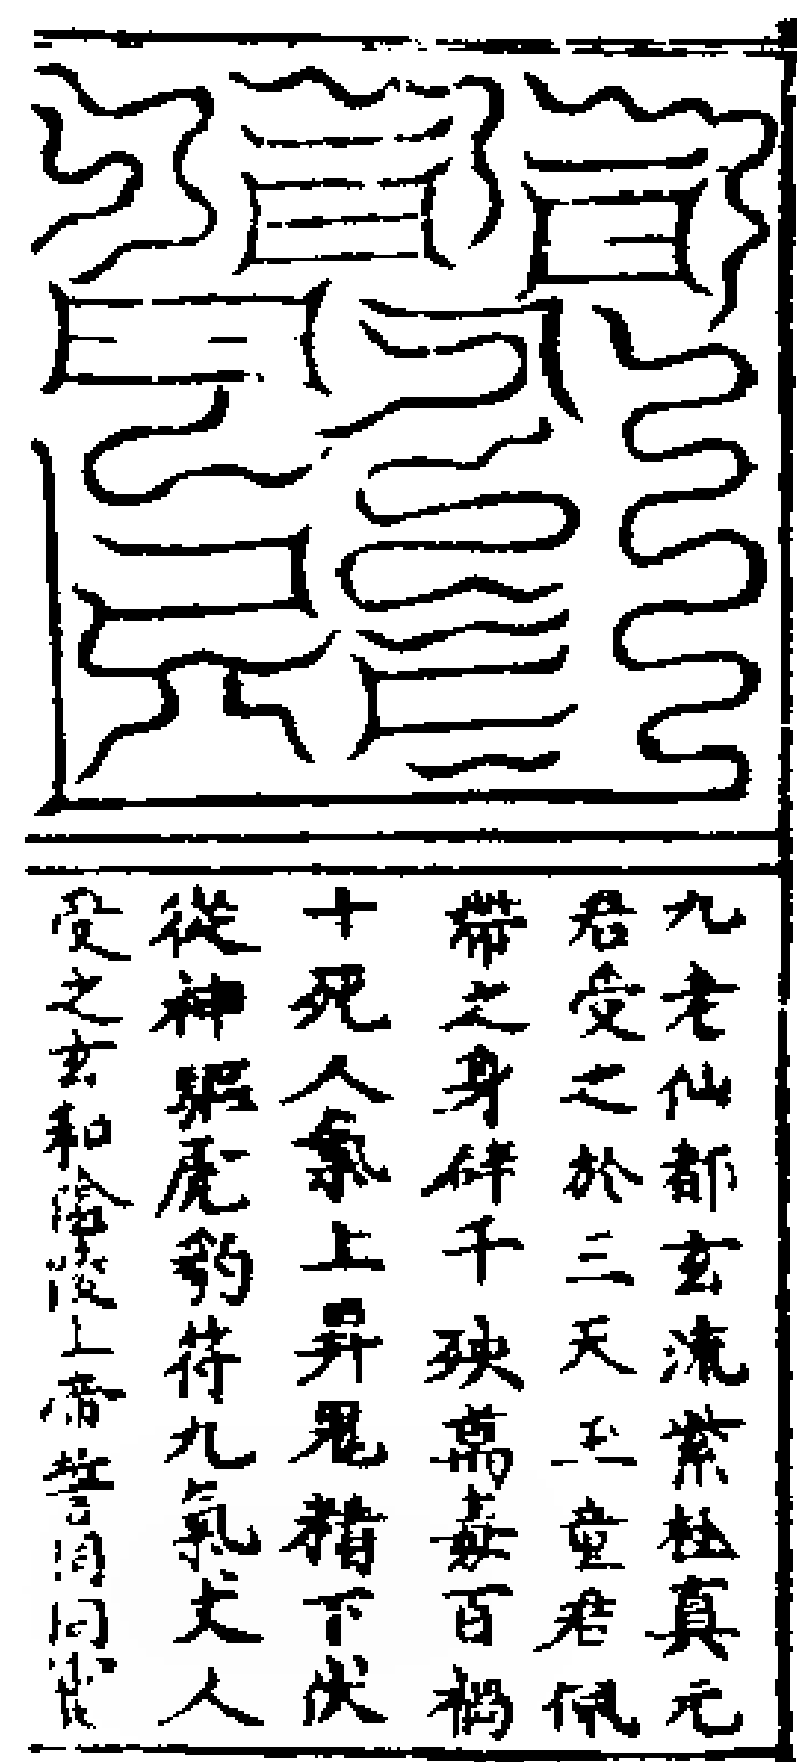 九老仙都玄流紫杜真元
君受之於三天玉童君佩
帶之身辟千殃萬妖百禍
十死人氣上昇鬼精下伏
從神驅虎豹符九氣丈人
受之玄和陰陵上帝誓同同